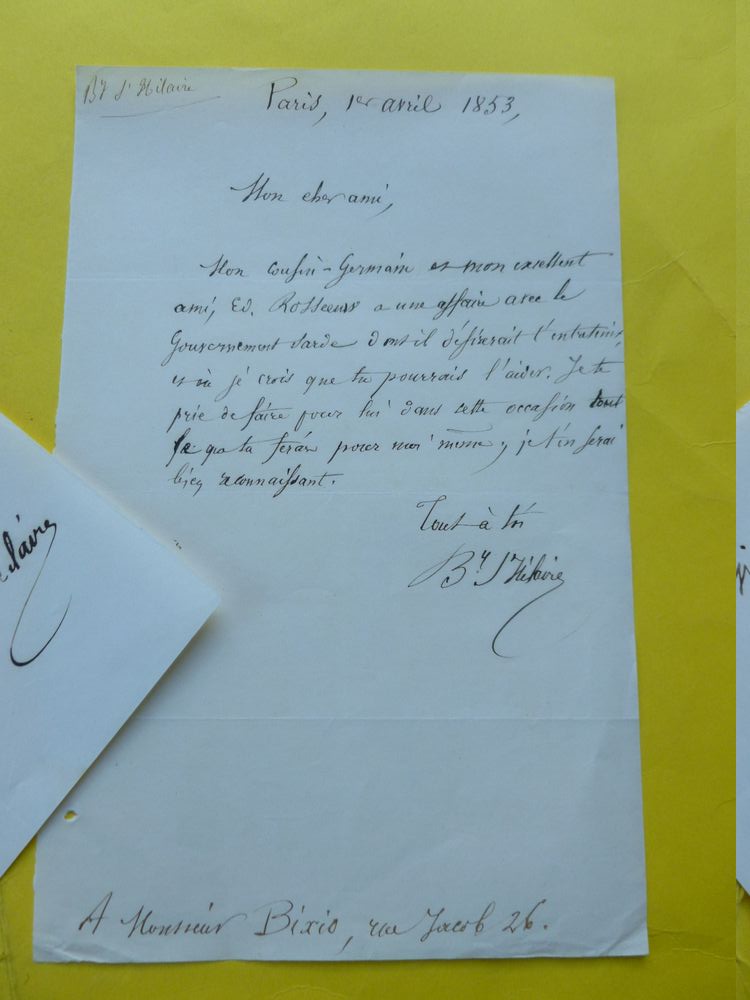 Bʸ Sᵗ Hilaire
Paris, 1er avril 1853,
Mon cher ami,
Mon cousin-Germain et mon excellent
ami, Ed. a une affaire avec le
Gouvernement Sarde dont il désirerait t'entretenir,
et où je crois que tu pourrais l'aider. Je te
prie de faire pour lui dans cette occasion tout
ce que tu feras pour moi même, je t'en serai
bien reconnaissant.
Tout à toi
Bʸ Sᵗ Hilaire
A Monsieur Bixio, rue Jacob 26.